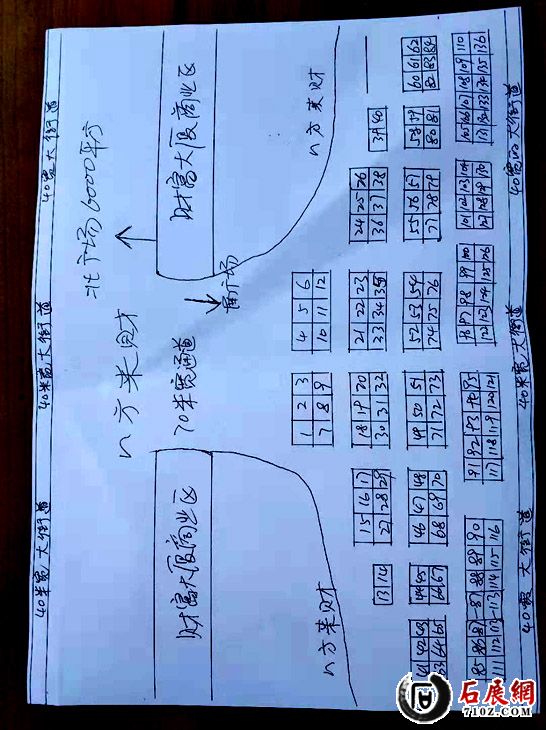 40米宽大街道 40米宽大街道 40宽大街道
北广场6000平方
八方来财
财富大厦商业区 70米宽通道 财富大厦商业区
南广场
八方来财 八方来财
1 2 3 4 5 6
7 8 9 10 11 12
13 14 15 16 17 18 19 20 21 22 23 24 25 26
27 28 29 30 31 32 33 34 35 36 37 38 39 40
41 42 43 44 45 46 47 48 49 50 51 52 53 54 55 56 57 58 59 60 61 62
63 64 65 66 67 68 69 70 71 72 73 74 75 76 77 78 79 80 81 82 83 84
85 86 87 88 89 90 91 92 93 94 95 96 97 98 99 100 101 102 103 104 105 106 107 108 109 110
111 112 113 114 115 116 117 118 119 120 121 122 123 124 125 126 127 128 129 130 131 132 133 134 135 136
40宽大街道 40米宽大街道 40宽的大街道
石展網
7102.COM